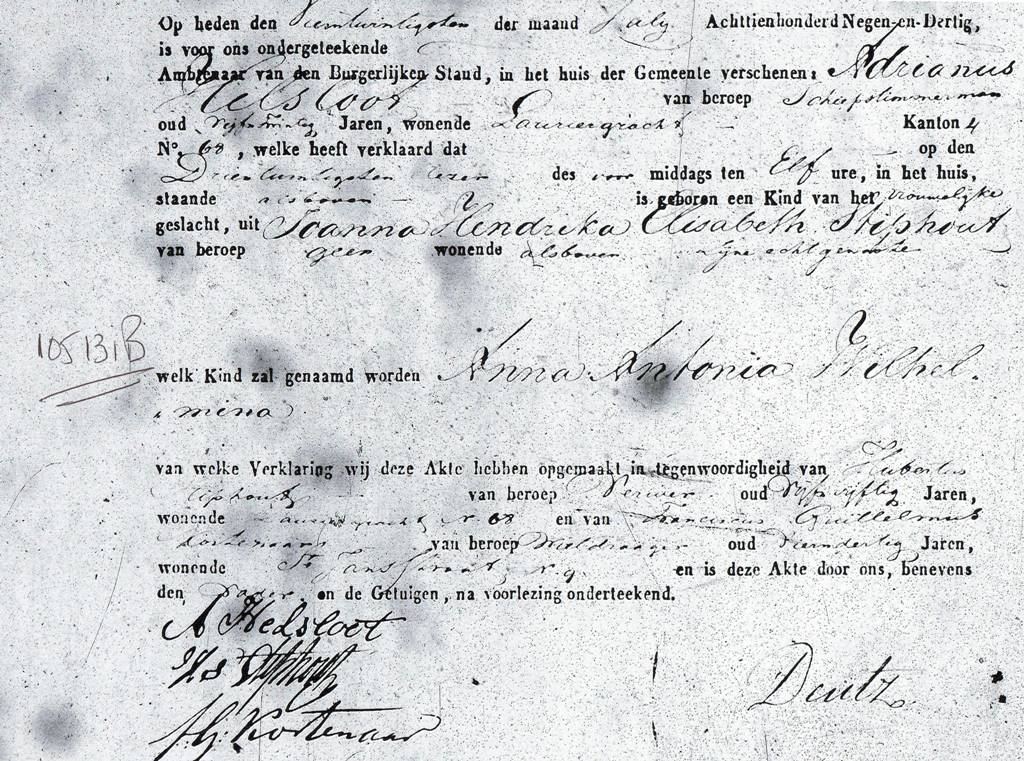 Op heden den Vierentwintigsten der maand July Achttienhonderd Negen-en-Dertig,
is voor ons ondergeteekende
Ambtenaar van den Burgerlijken Stand, in het huis der Gemeente verschenen: Adrianus
Helsloot van beroep Scheepstimmerman
oud Jaren, wonende Lauriergracht Kanton 4
N°. 68, welke heeft verklaard dat op den
Drieentwintigsten dezer des voor middags ten Elf ure, in het huis,
staande alsboven is geboren een Kind van het vrouwelijke
geslacht, uit Joanna Hendrika Elisabeth Stiphout
van beroep geen wonende alsboven zijne echtgenoote
105131B
welk Kind zal genaamd worden Anna Antonia Wilhel-
mina
van welke Verklaring wij deze Akte hebben opgemaakt in tegenwoordigheid van Hubertus
Stiphout van beroep Verwer oud Vijfenvijftig Jaren,
wonende Lauriergracht N 68 en van Franciscus Guillelmus
Kortenaar van beroep oud Vierendertig Jaren,
wonende St Jansstraat N. 9 en is deze Akte door ons, benevens
den Vader en de Getuigen, na voorlezing onderteekend.
A Helsloot
Hs Stiphout
F: G: Kortenaar
Deutz